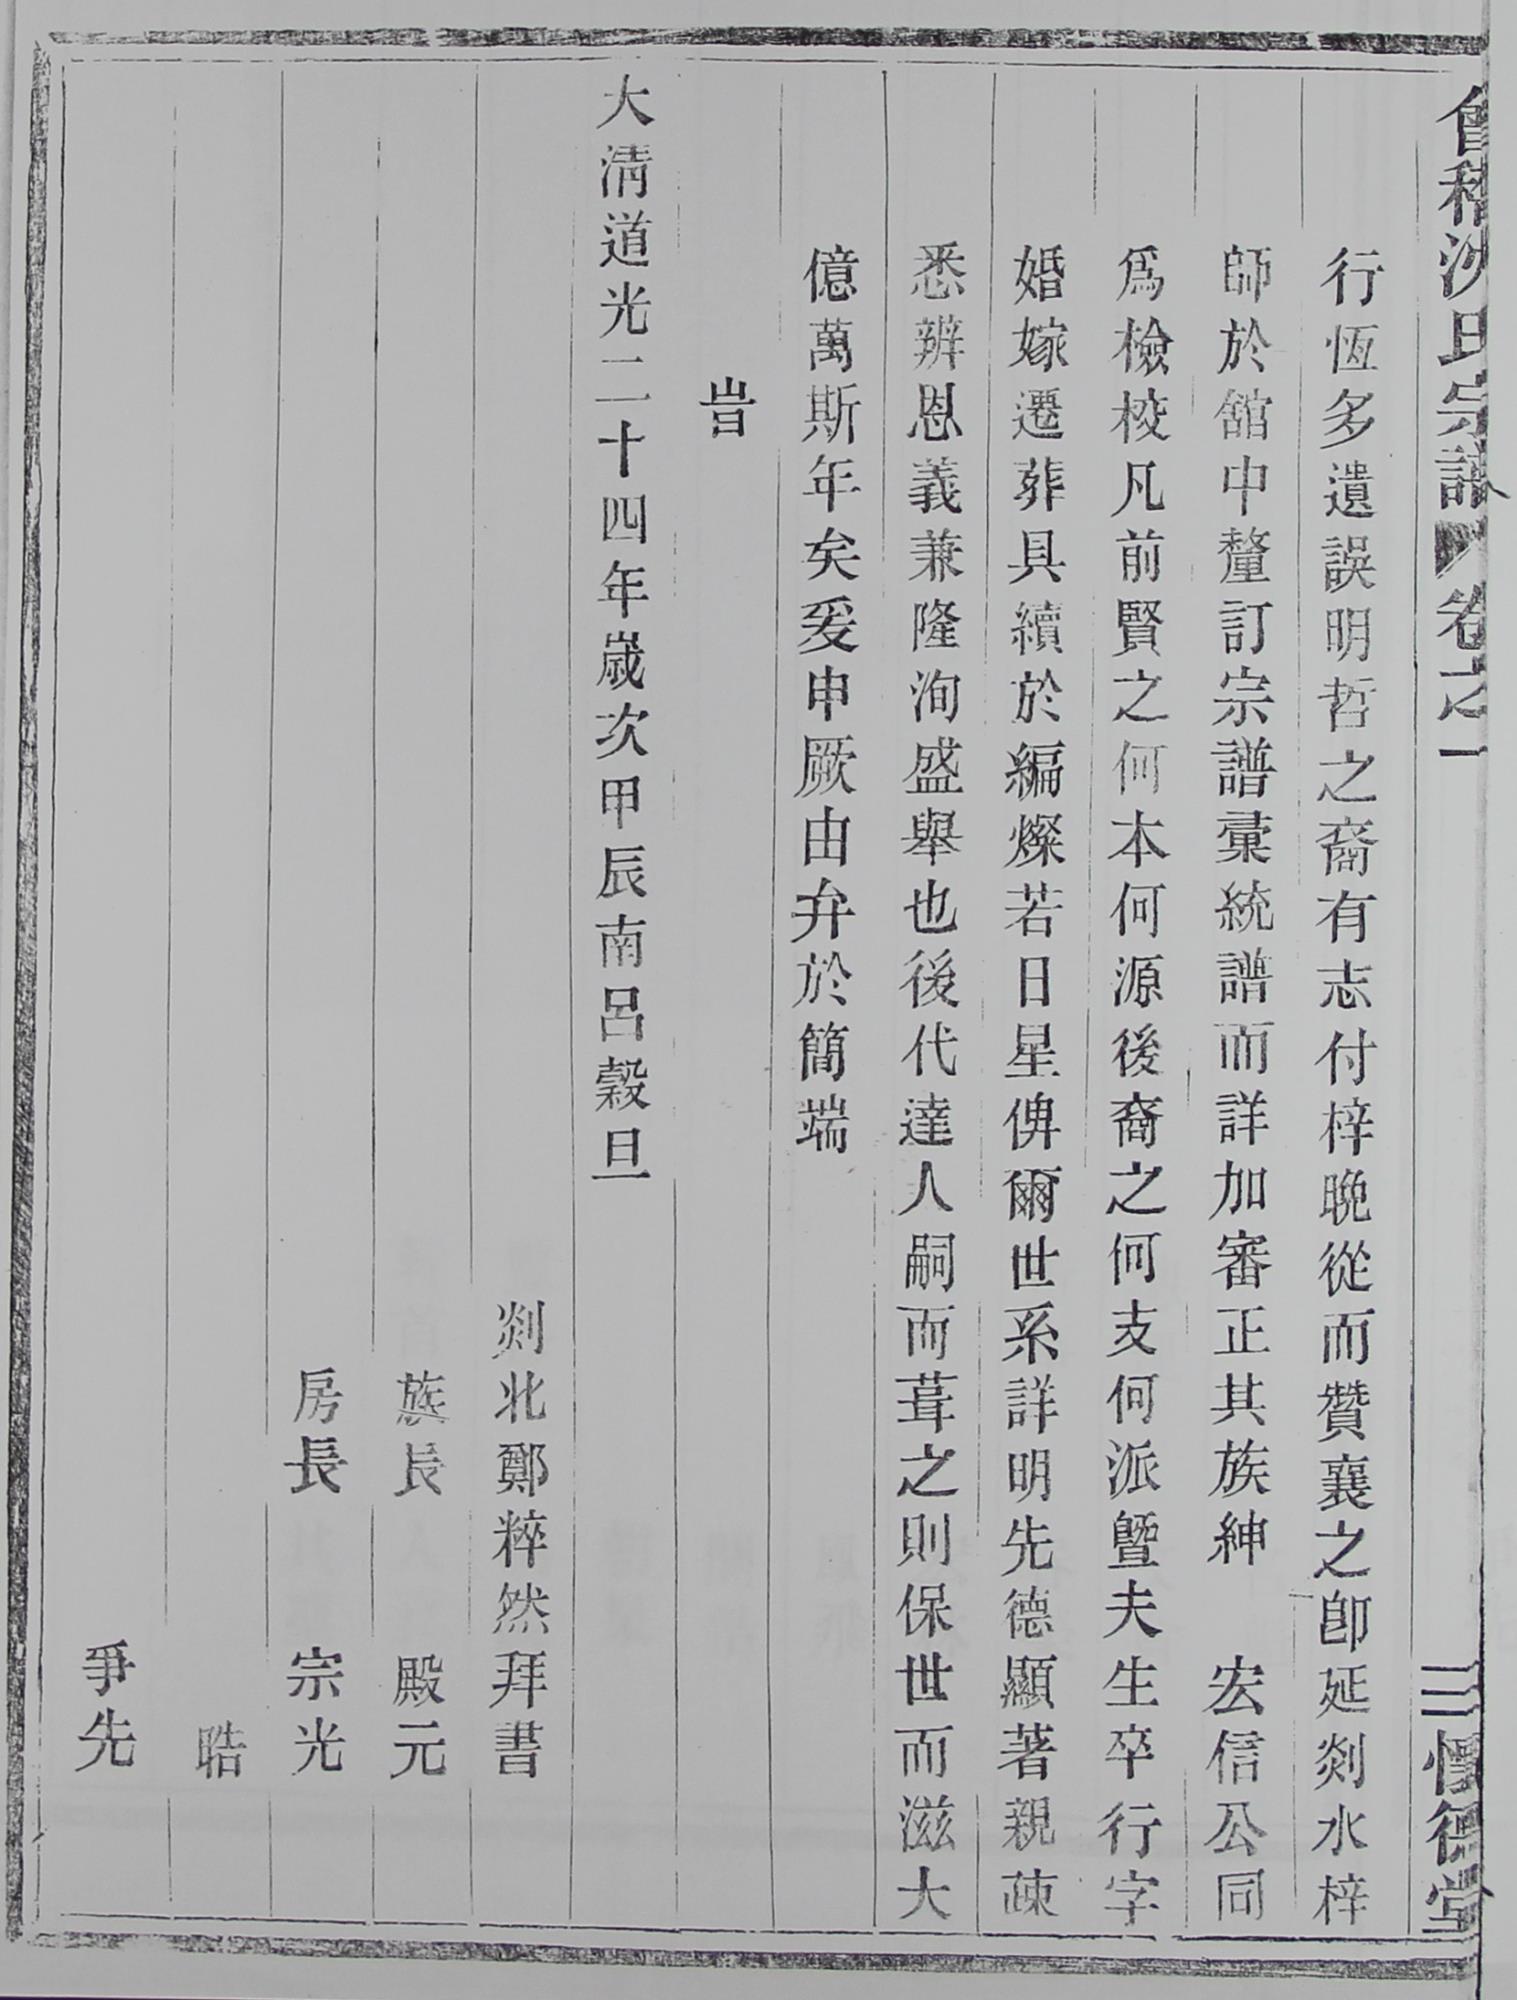 會稽沈氏宗譜 卷之一 三 懷德堂
行恆多遺誤明哲之裔有志付梓晚從而贊襄之卽延剡水梓
師於舘中釐訂宗譜彙統譜而詳加審正其族紳 宏信公同
爲檢校凡前賢之何本何源後裔之何支何派曁夫生卒行字
婚嫁遷葬具續於編燦若日星俾爾世系詳明先德顯著親疎
悉辨恩義兼隆洵盛舉也後代達人嗣而葺之則保世而滋大
億萬斯年矣爰申厥由弁於簡端
旹
大淸道光二十四年歲次甲辰南呂穀旦
剡北鄭粹然拜書
族長 殿元
房長 宗光
晧
爭先